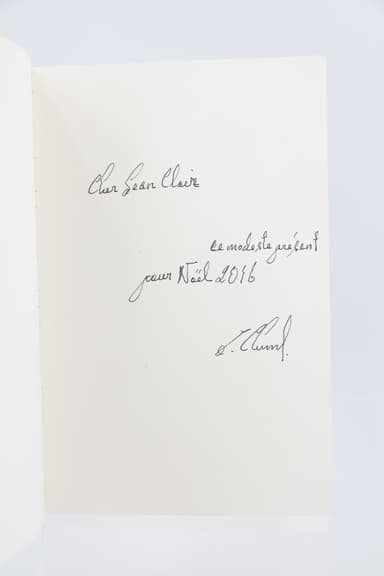 Cher Jean Clair
ce modeste présent
pour Noël 2016